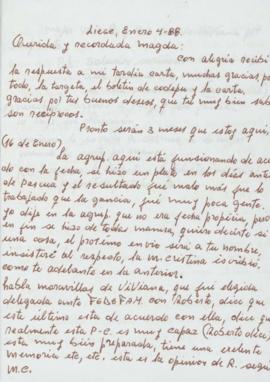 Liege, Enero 4-88.
Querida y recordada Magda:
con alegria recibi
la respuesta a mi tardia carta, muchas gracias por
todo, la targeta, el boletin de codepu y la carta.
gracias por tus buenos deseos, que tu muy bien sab
son reciprocos.
Pronto serán 3 meses que estoy aquí
(16 de Enero),
La agrup. aquí esta funcionando de acuer
do con la fecha, se hizo un plato en los dias antes
de pascua y el resultado fué malo más fue lo
trabajado que la gancia, fué muy poca gente.
yo dije en la agrup. que no era fecha propicia, pero
en fin se hizo de todas manera, quiero decirte si
una cosa, el proximo envio será a tu nombre,
insistiré al respecto, la M. Cristina
como te adelante en la anterior.
habla maravillas de Viviana, que fué elegida
delegada ante FEDEFAM. con Roberto, dice que
este ultimo esta de acuerdo con ella, dice que
realmente esta P-C. es muy capaz (Roberto dice)
esta muy bien preparada, tiene una excelente
memoria etc, etc. esta es la opinion de R. segun
M.C.